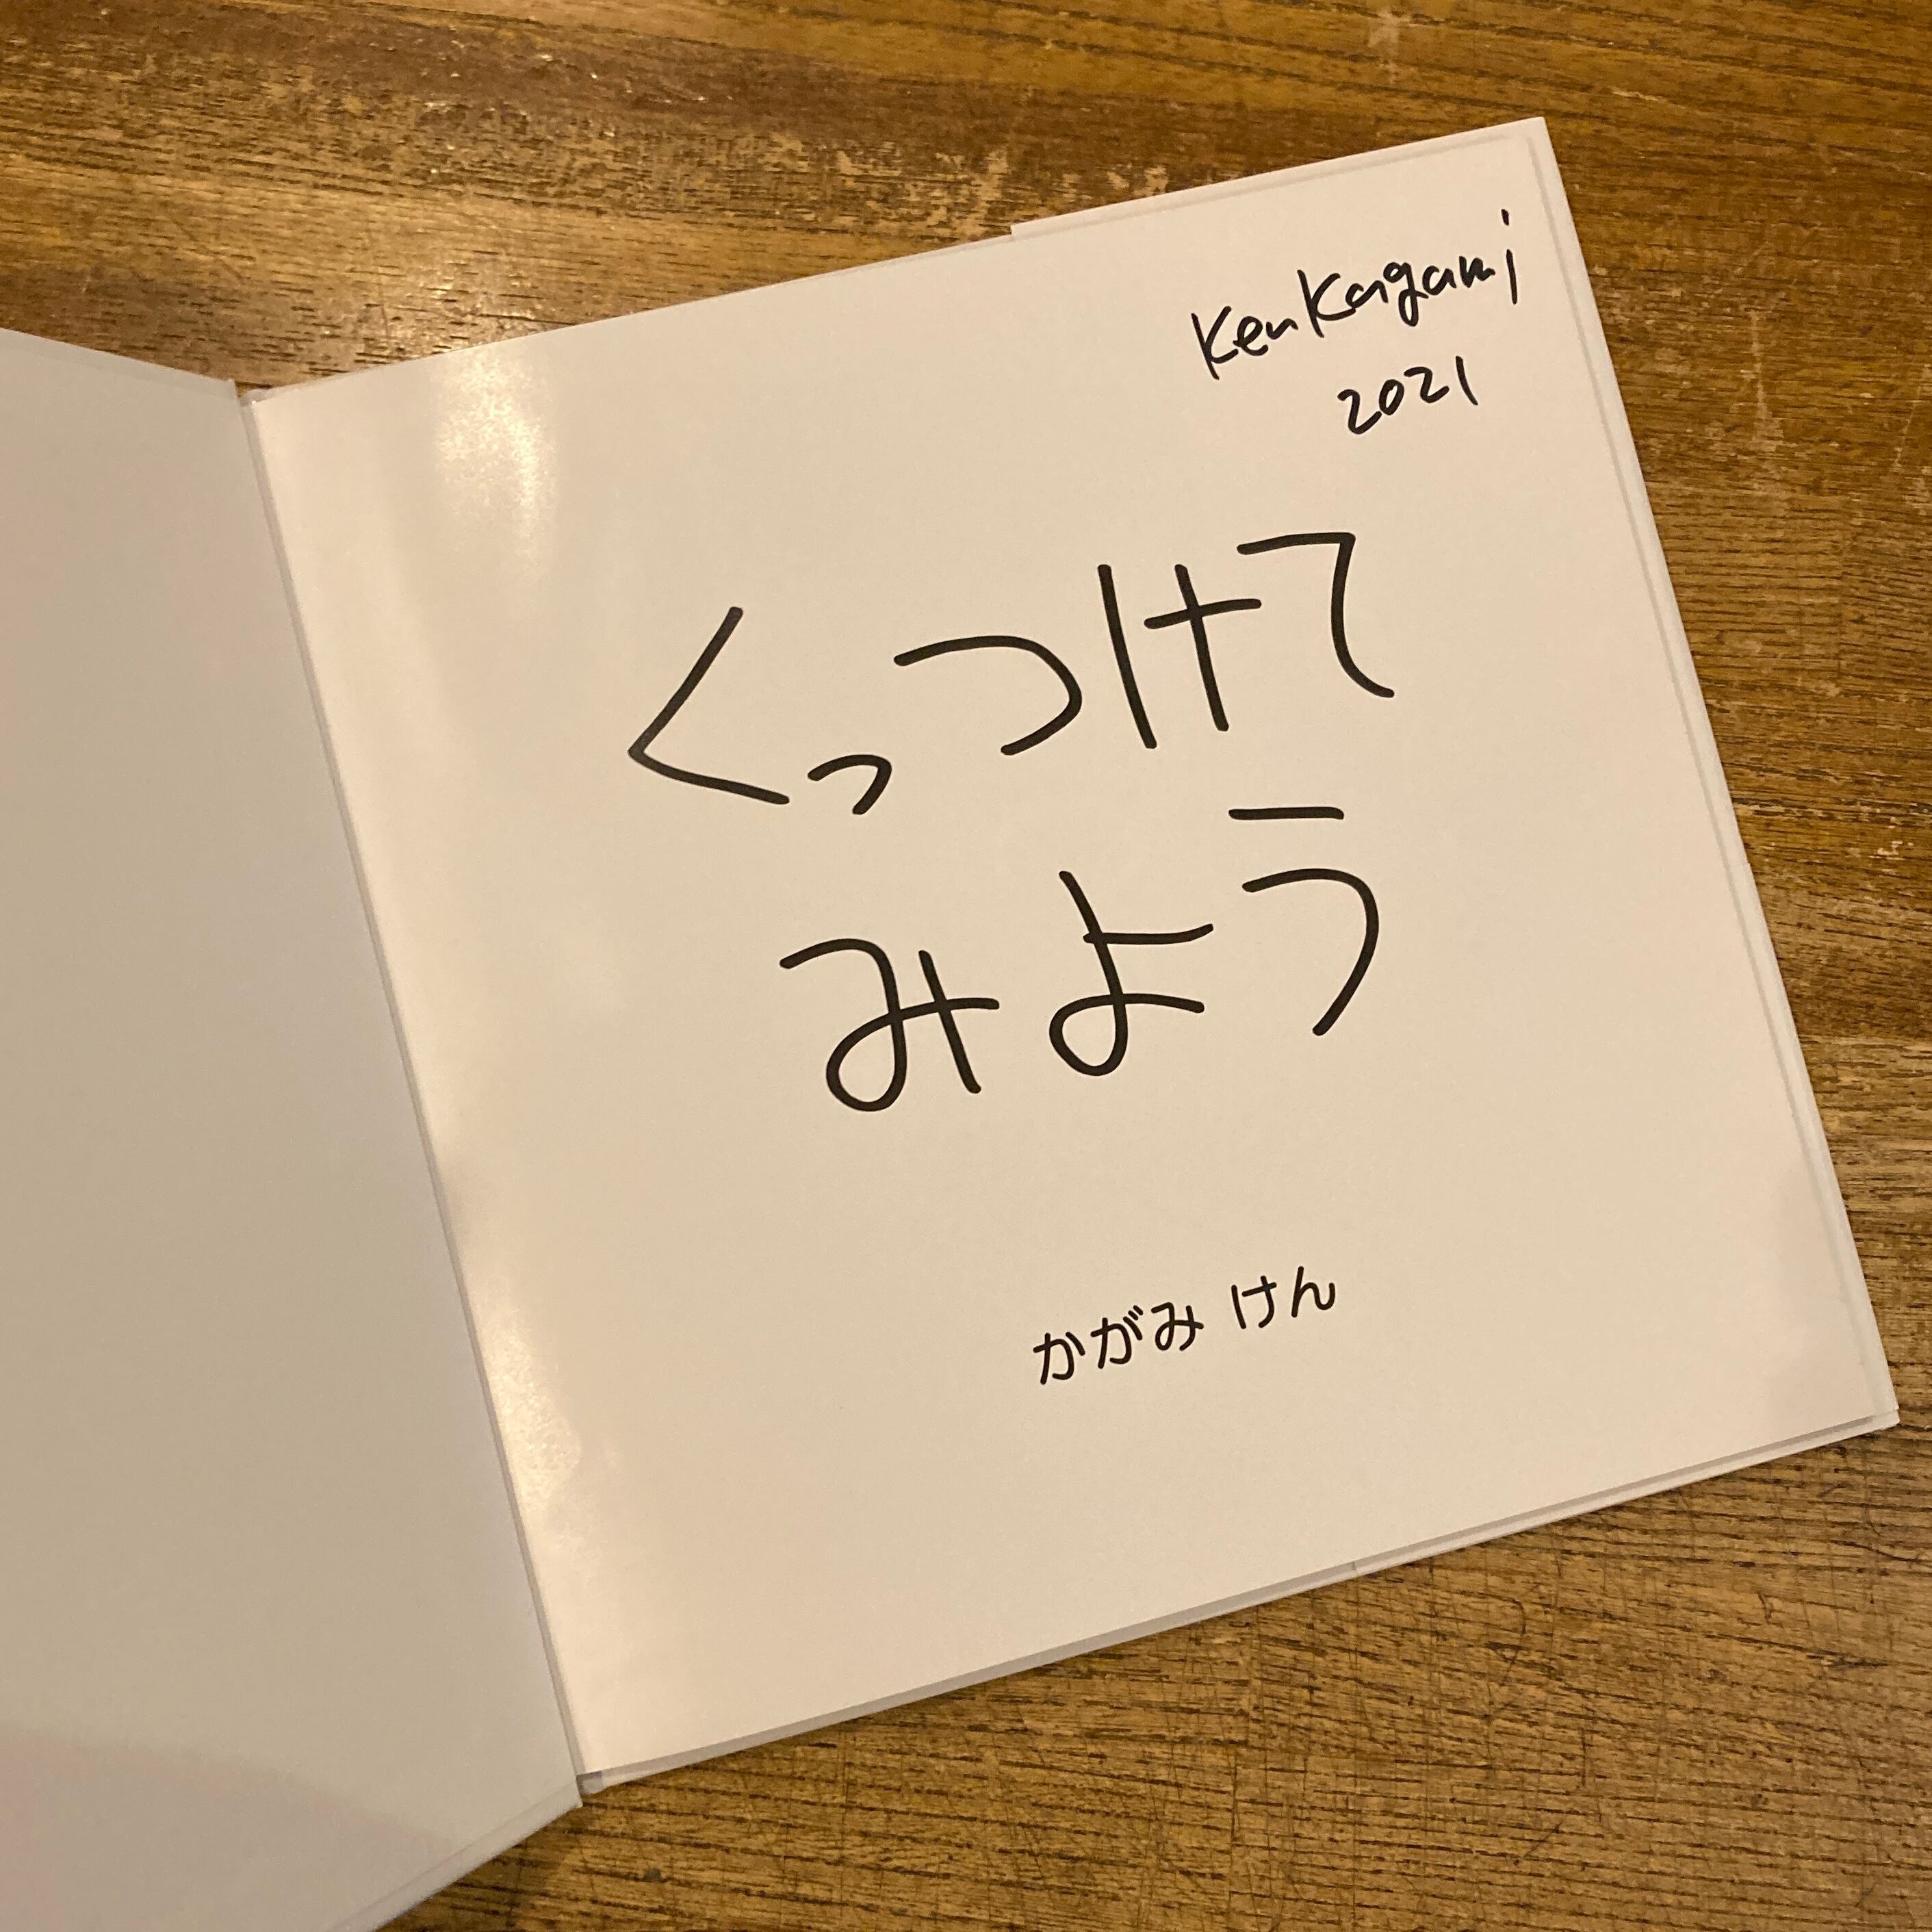 Ken Kagami
2021
くっつけて
みよう
かがみ けん